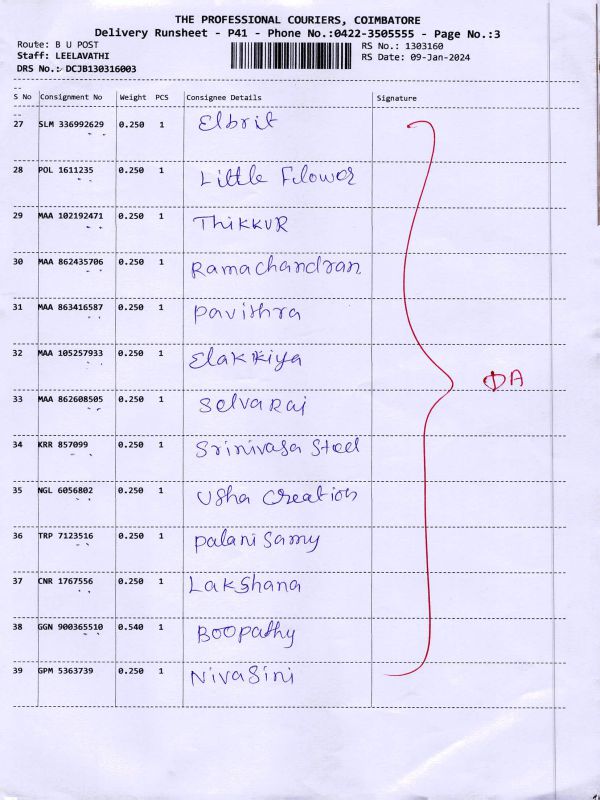 THE PROFESSIONAL COURIERS, COIMBATORE
Delivery Runsheet - P41 - Phone No.:0422-3505555 - Page No.:3
Route: B U POST RS No.: 1303160
Staff: LEELAVATHI RS Date: 09-Jan-2024
DRS No.: DCJB130316003
S No Consignment No Weight PCS Consignee Details Signature
27 SLM 336992629 0.250 1 Elbrit
28 POL 1611235 0.250 1 Little Flower
29 MAA 102192471 0.250 1 Thikkur
30 MAA 862435706 0.250 1 Ramachandran
31 MAA 863416587 0.250 1 Pavithra
32 MAA 105257933 0.250 1 Elakkiya
33 MAA 862608505 0.250 1 Selvaraj
34 KRR 857099 0.250 1 Srinivasa Steel
35 NGL 6056802 0.250 1 Usha Creation
36 TRP 7123516 0.250 1 Palani Samy
37 CNR 1767556 0.250 1 Lakshana
38 GGN 900365510 0.540 1 Boopathy
39 GPM 5363739 0.250 1 Nivasini